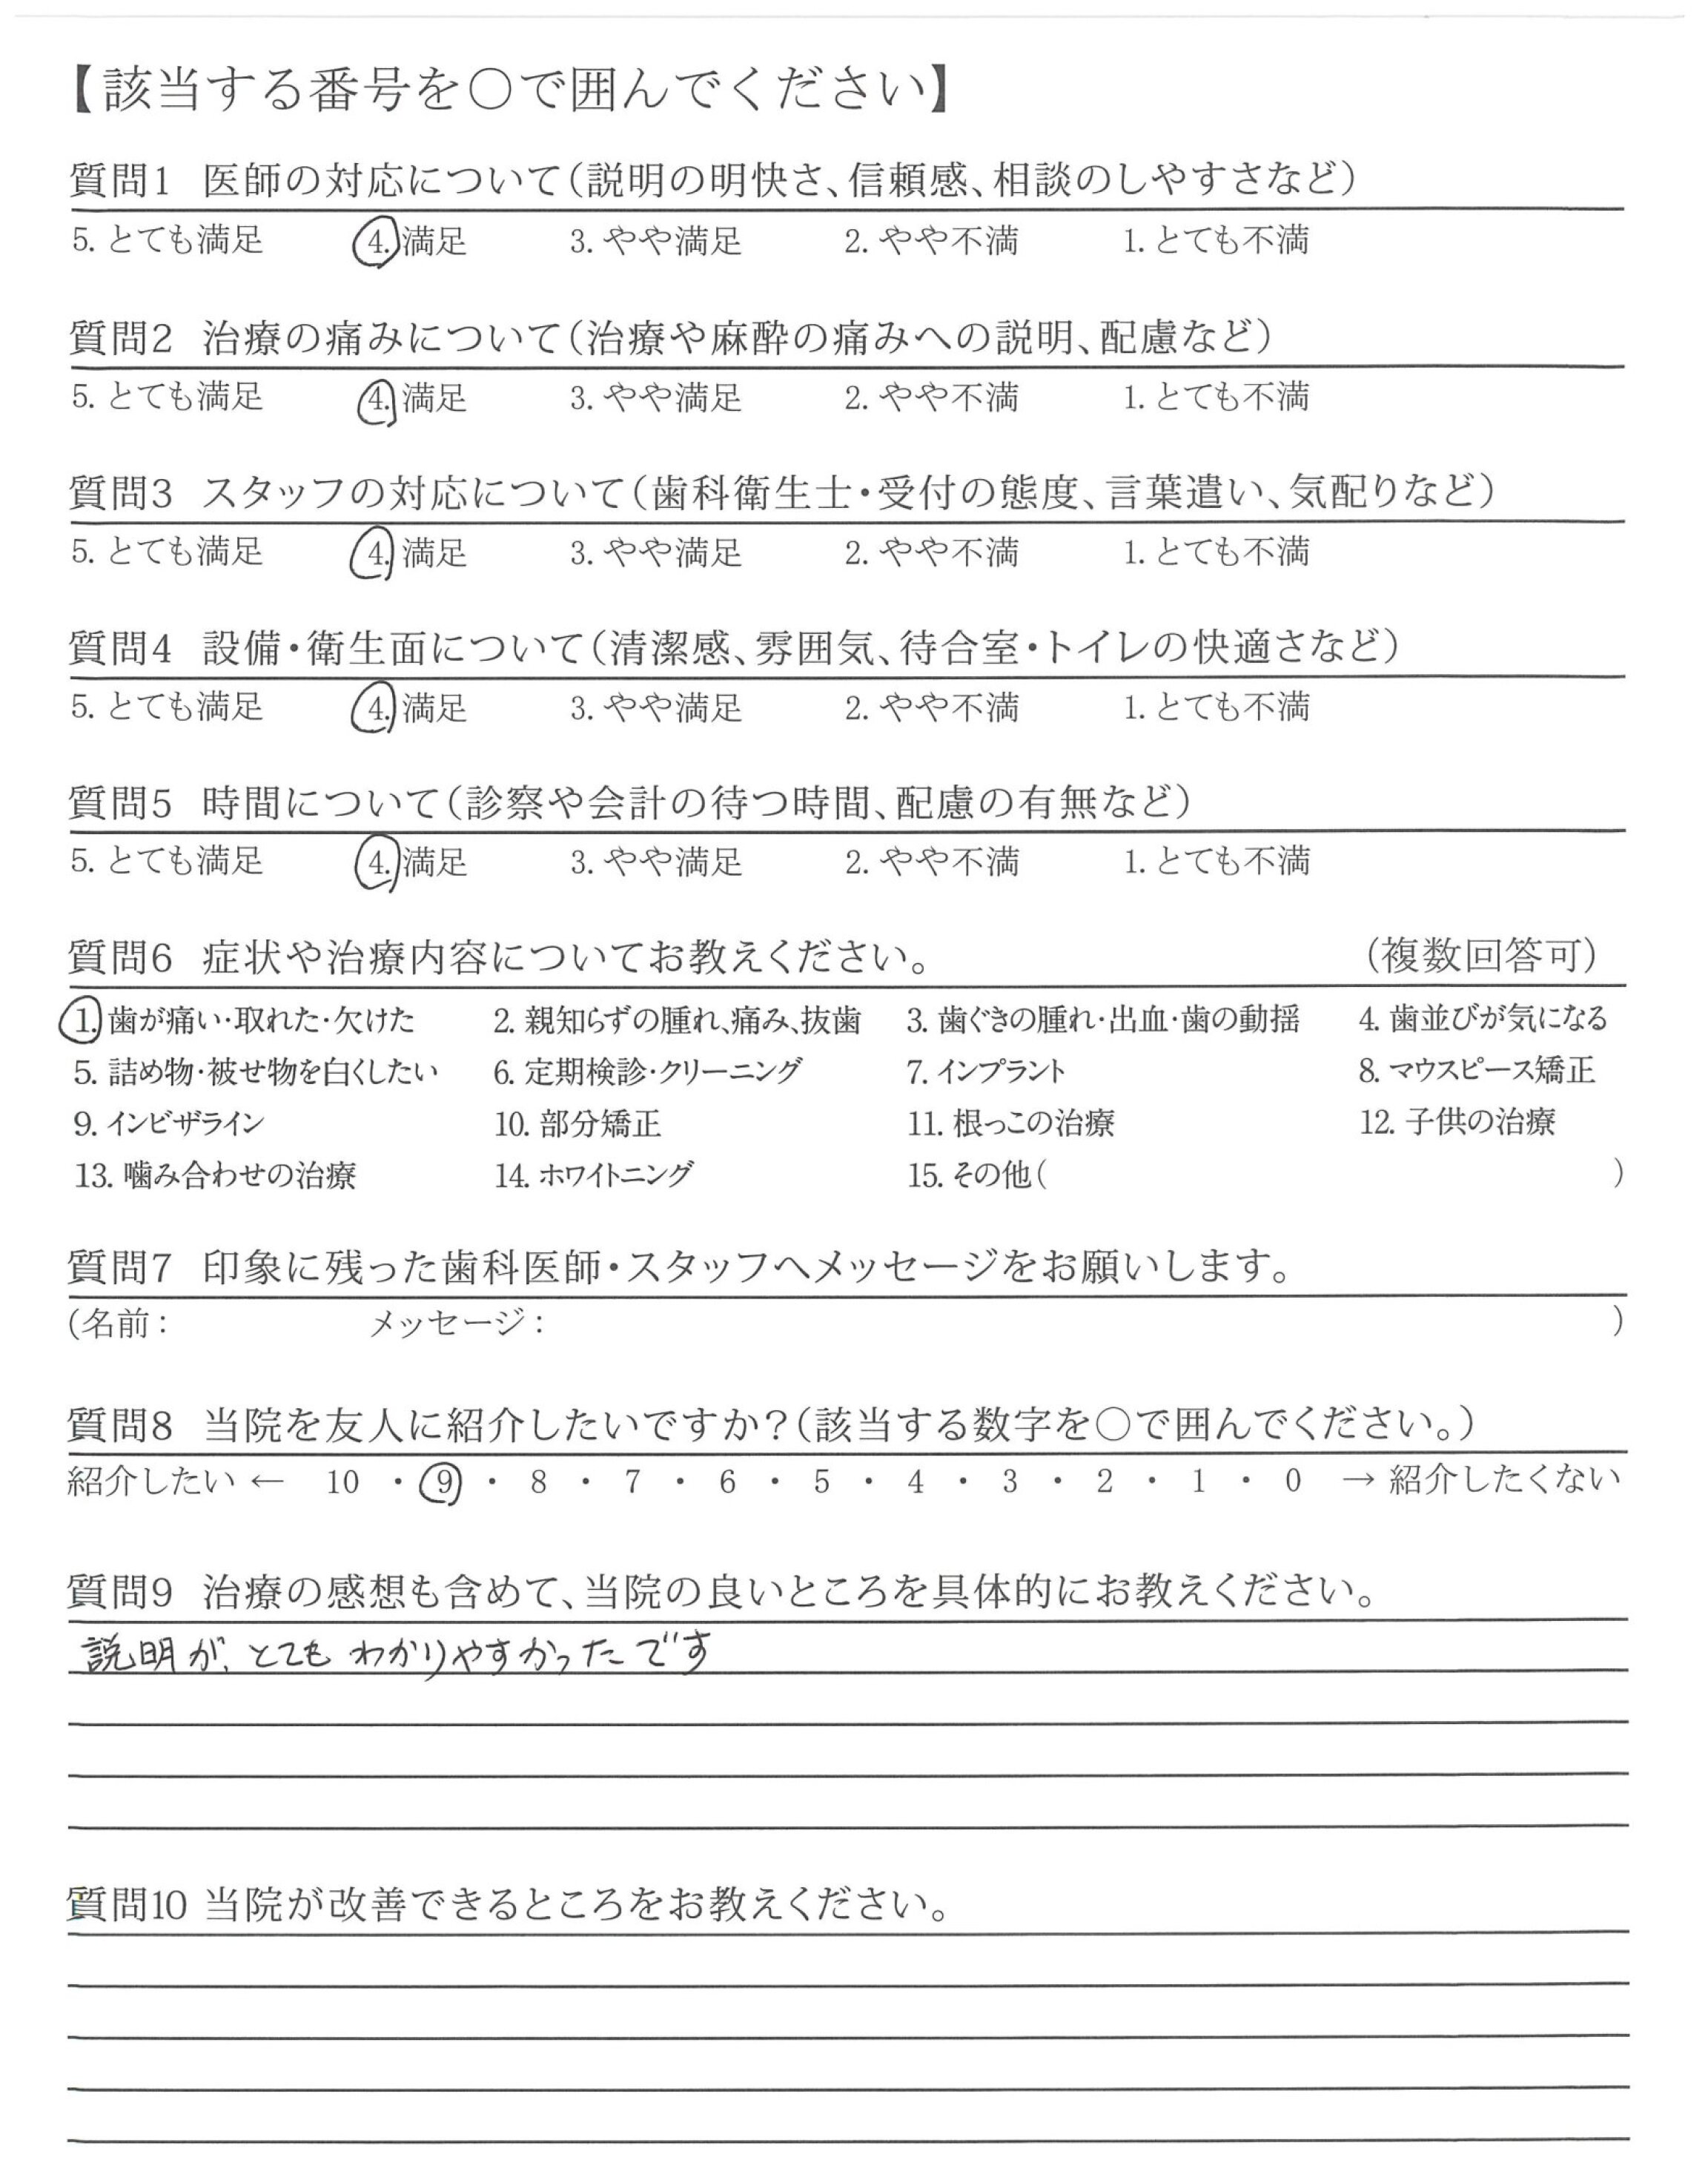 【該当する番号を○で囲んでください】
質問1 医師の対応について(説明の明快さ、信頼感、相談のしやすさなど)
5. とても満足 4. 満足 3. やや満足 2. やや不満 1. とても不満
質問2 治療の痛みについて(治療や麻酔の痛みへの説明、配慮など)
5. とても満足 4. 満足 3. やや満足 2. やや不満 1. とても不満
質問3 スタッフの対応について(歯科衛生士・受付の態度、言葉遣い、気配りなど)
5. とても満足 4. 満足 3. やや満足 2. やや不満 1. とても不満
質問4 設備・衛生面について(清潔感、雰囲気、待合室・トイレの快適さなど)
5. とても満足 4. 満足 3. やや満足 2. やや不満 1. とても不満
質問5 時間について(診察や会計の待つ時間、配慮の有無など)
5. とても満足 4. 満足 3. やや満足 2. やや不満 1. とても不満
質問6 症状や治療内容についてお教えください。 (複数回答可)
1. 歯が痛い・取れた・欠けた 2. 親知らずの腫れ、痛み、抜歯 3. 歯ぐきの腫れ・出血・歯の動揺 4. 歯並びが気になる
5. 詰め物・被せ物を白くしたい 6. 定期検診・クリーニング 7. インプラント 8. マウスピース矯正
9. インビザライン 10. 部分矯正 11. 根っこの治療 12. 子供の治療
13. 噛み合わせの治療 14. ホワイトニング 15. その他( )
質問7 印象に残った歯科医師・スタッフへメッセージをお願いします。
(名前: メッセージ: )
質問8 当院を友人に紹介したいですか?(該当する数字を○で囲んでください。)
紹介したい ← 10 ・ 9 ・ 8 ・ 7 ・ 6 ・ 5 ・ 4 ・ 3 ・ 2 ・ 1 ・ 0 → 紹介したくない
質問9 治療の感想も含めて、当院の良いところを具体的にお教えください。
説明が、とてもわかりやすかったです
質問10 当院が改善できるところをお教えください。